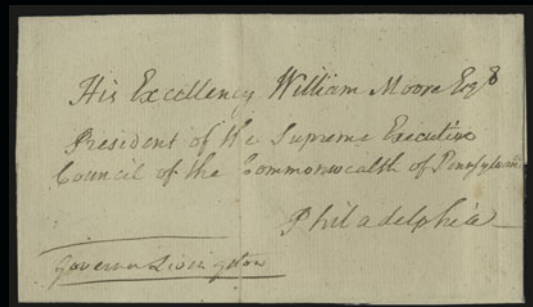 His Excellency William Moore Esqr
President of the Supreme Executive
Council of the Commonwealth of Pennsylvania
Philadelphia
Governor Livingston